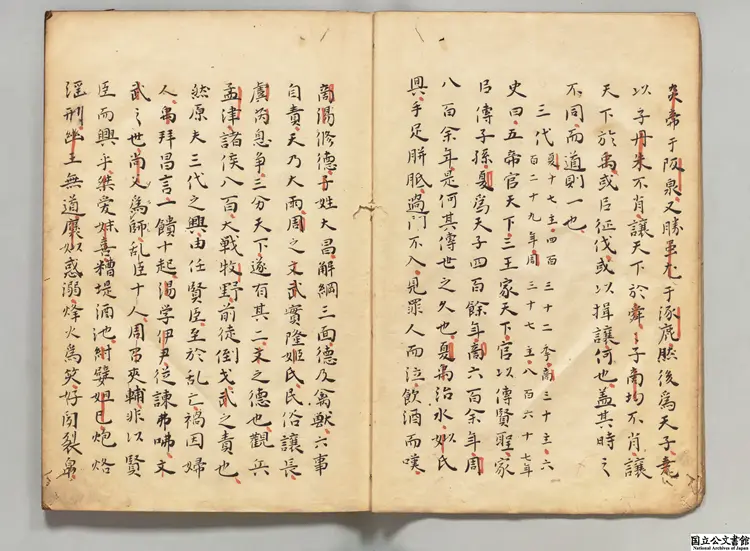 炎帝于阪泉又勝蚩尤于涿鹿然後爲天子堯
以子丹朱不肖讓天下於舜〻子商均不肖讓
天下於禹或以征伐或以揖讓何也蓋其時之
不同而道則一也
三代夏十七主四百三十二季商三十主六
百二十九年周三十七主八百六十七年
史曰五帝官天下三王家天下官以傳賢聖家
以傳子孫夏爲天子四百餘年商六百余年周
八百余年是何其傳世之久也夏禹治水姒氏
興手足胼胝過門不入見罪人而泣飲酒而嘆
商湯修德子姓大昌解網三面德及禽獸六事
自責天乃大雨周之文武實隆姬氏民俗讓長
虞芮息爭三分天下遂有其二文之德也觀兵
孟津諸侯八百大戰牧野前徒倒戈武之責也
然原夫三代之興由任賢臣至於乱亡禍因婦
人禹拜昌言一饋十起湯学伊尹從諫弗咈文
武之世尚父爲師乱臣十人周召夾輔非以賢
臣而興乎桀爱妹喜糟堤酒池紂嬖妲己炮烙
淫刑幽王無道褒姒惑溺烽火爲笑好聞裂帛
国立公文書館
National Archives of Japan